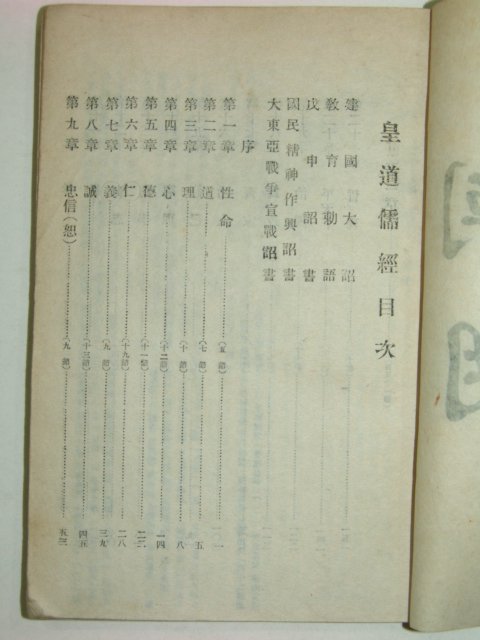 皇道儒經目次
建國大詔
教育勅語
戊申詔書
國民精神作興詔書
大東亞戰爭宣戰詔書
序
第一章 性命 (五節) 一
第二章 道 (七節) 五
第三章 理 (十節) 八
第四章 心 (十二節) 一四
第五章 德 (十一節) 二三
第六章 仁 (十九節) 二八
第七章 義 (九節) 三九
第八章 誠 (十三節) 四五
第九章 忠信(恕) (九節) 五三